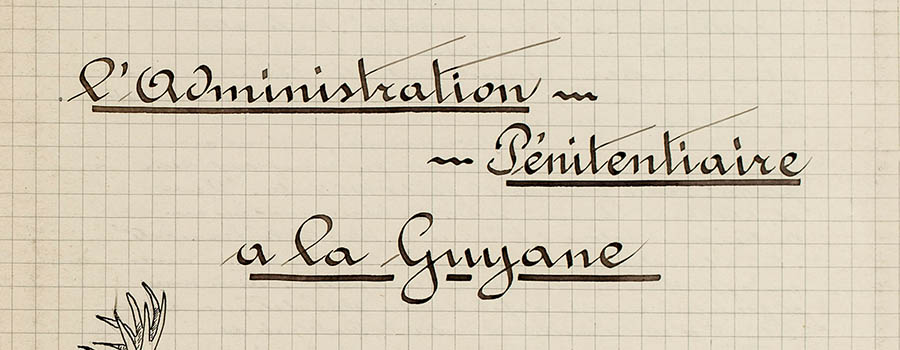 l'Administration ~
~ Pénitentiaire
a la Guyane